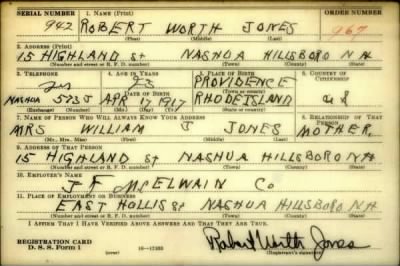 SERIAL NUMBER 1. NAME (Print) ORDER NUMBER
942 ROBERT WORTH JONES 967
(First) (Middle) (Last)
2. ADDRESS (Print)
15 HIGHLAND St NASHUA HILLSBORO N.H
(Number and street or R. F. D. number) (Town) (County) (State)
3. TELEPHONE 4. AGE IN YEARS 5. PLACE OF BIRTH 6. COUNTRY OF CITIZENSHIP
23 PROVIDENCE
DATE OF BIRTH (Town or county)
NASHUA 5235 APR 17 1917 RHODE ISLAND
(Exchange) (Number) (Mo.) (Day) (Yr.) (State or country)
7. NAME OF PERSON WHO WILL ALWAYS KNOW YOUR ADDRESS 8. RELATIONSHIP OF THAT PERSON
MRS WILLIAM J JONES MOTHER,
(Mr., Mrs., Miss) (First) (Middle) (Last)
9. ADDRESS OF THAT PERSON
15 HIGHLAND St NASHUA HILLSBORO N.H
(Number and street or R. F. D. number) (Town) (County) (State)
10. EMPLOYER'S NAME
J F McELWAIN Co
11. PLACE OF EMPLOYMENT OR BUSINESS
EAST HOLLIS St NASHUA HILLSBORO N.H
(Number and street or R. F. D. number) (Town) (County) (State)
I AFFIRM THAT I HAVE VERIFIED ABOVE ANSWERS AND THAT THEY ARE TRUE.
REGISTRATION CARD
D. S. S. Form 1 (over) Robert Worth Jones
(Registrant's signature)